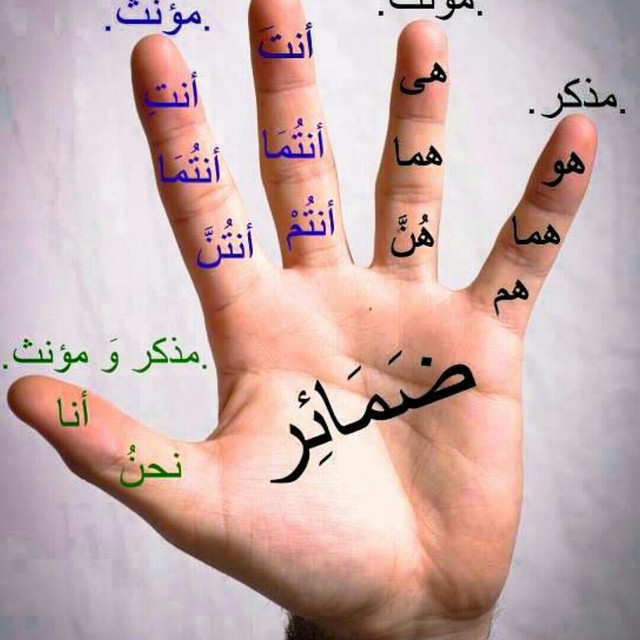 .مؤنث.
أنتِ
أنتُمَا
أنتُنَّ
أنتَ
أنتُمَا
أنتُمْ
.مؤنث.
هى
هما
هُنَّ
.مذكر.
هو
هما
هم
.مذكر وَ مؤنث.
أنا
نحنُ
ضَمَائِر